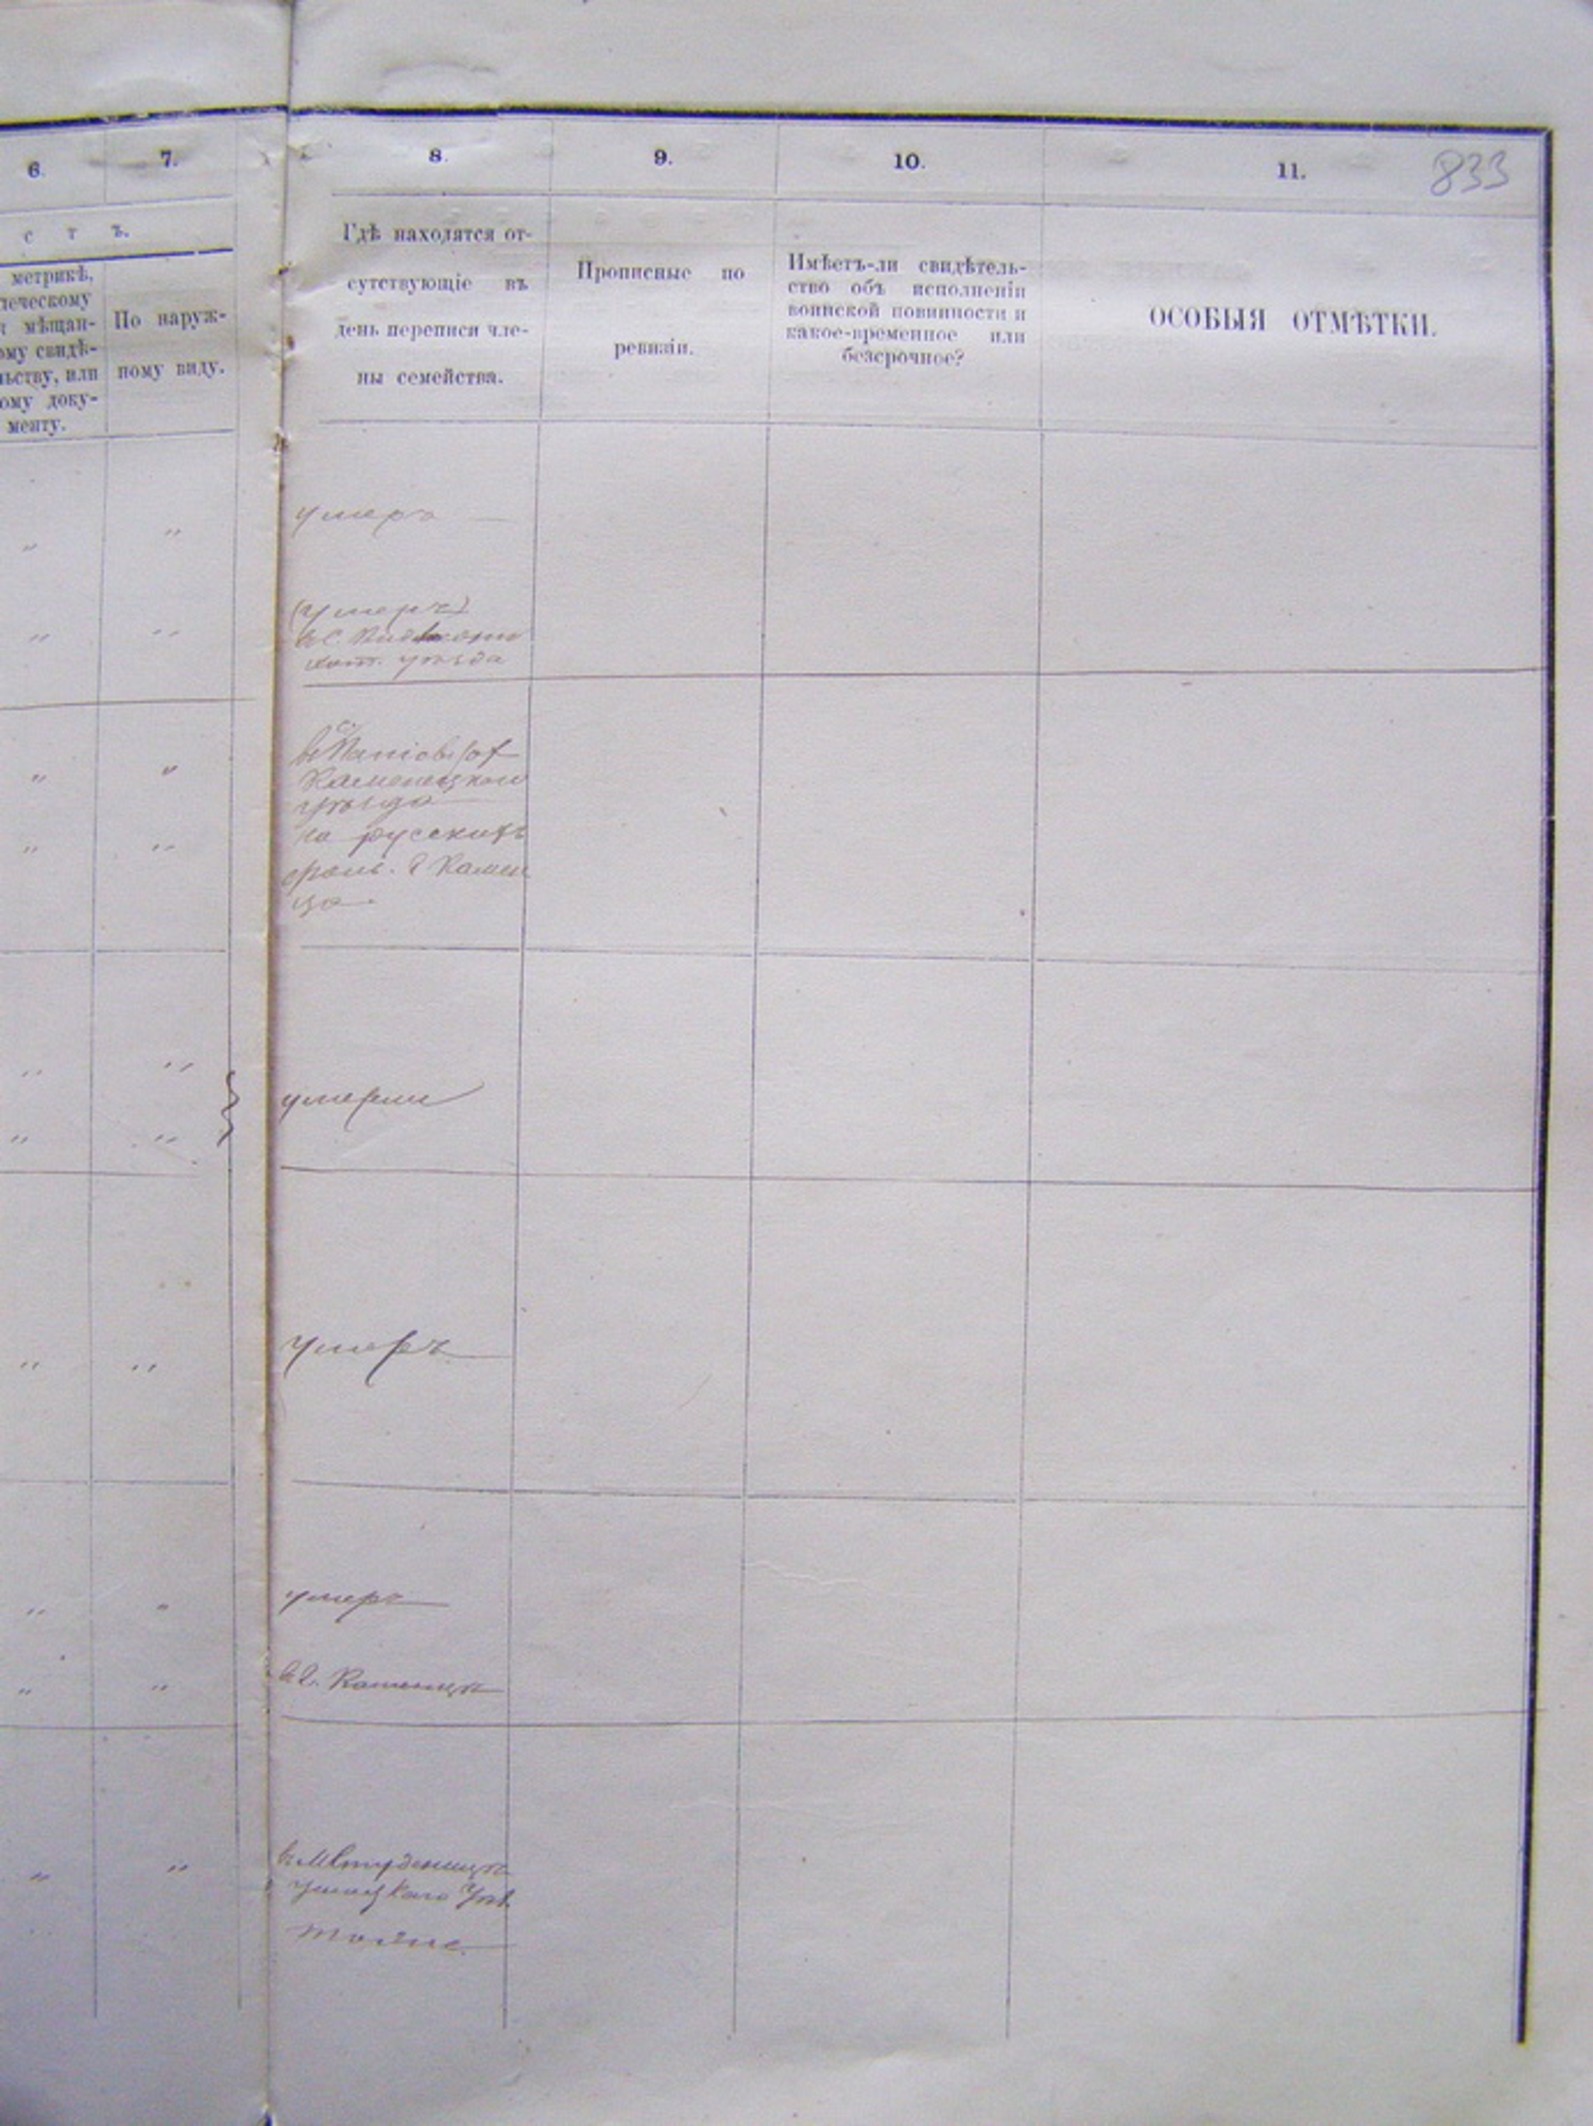 6.
7.
8.
9.
10.
11.
833
с т ъ.
метрикѣ,
мѣщан-
ому свидѣ-
льству, или
ому доку-
менту.
По наруж-
ному виду.
Гдѣ находятся от-
сутствующіе въ
день переписи чле-
ны семейства.
Прописные по
ревизіи.
Имѣетъ-ли свидѣтель-
ство объ исполненіи
воинской повинности и
какое-временное или
безсрочное?
ОСОБЫЯ ОТМѢТКИ.
" "
умеръ
" "
(умеръ)
въ С.
уѣзда
" "
Каменецкого
уѣзда
" "
на русскихъ
фольв. г Камен
ца
" "
" "
умерли
" "
умеръ
" "
умеръ
" "
въ г. Каменцѣ
" "
въ М Студеницѣ
Ушицкаго Уѣз.
тоже